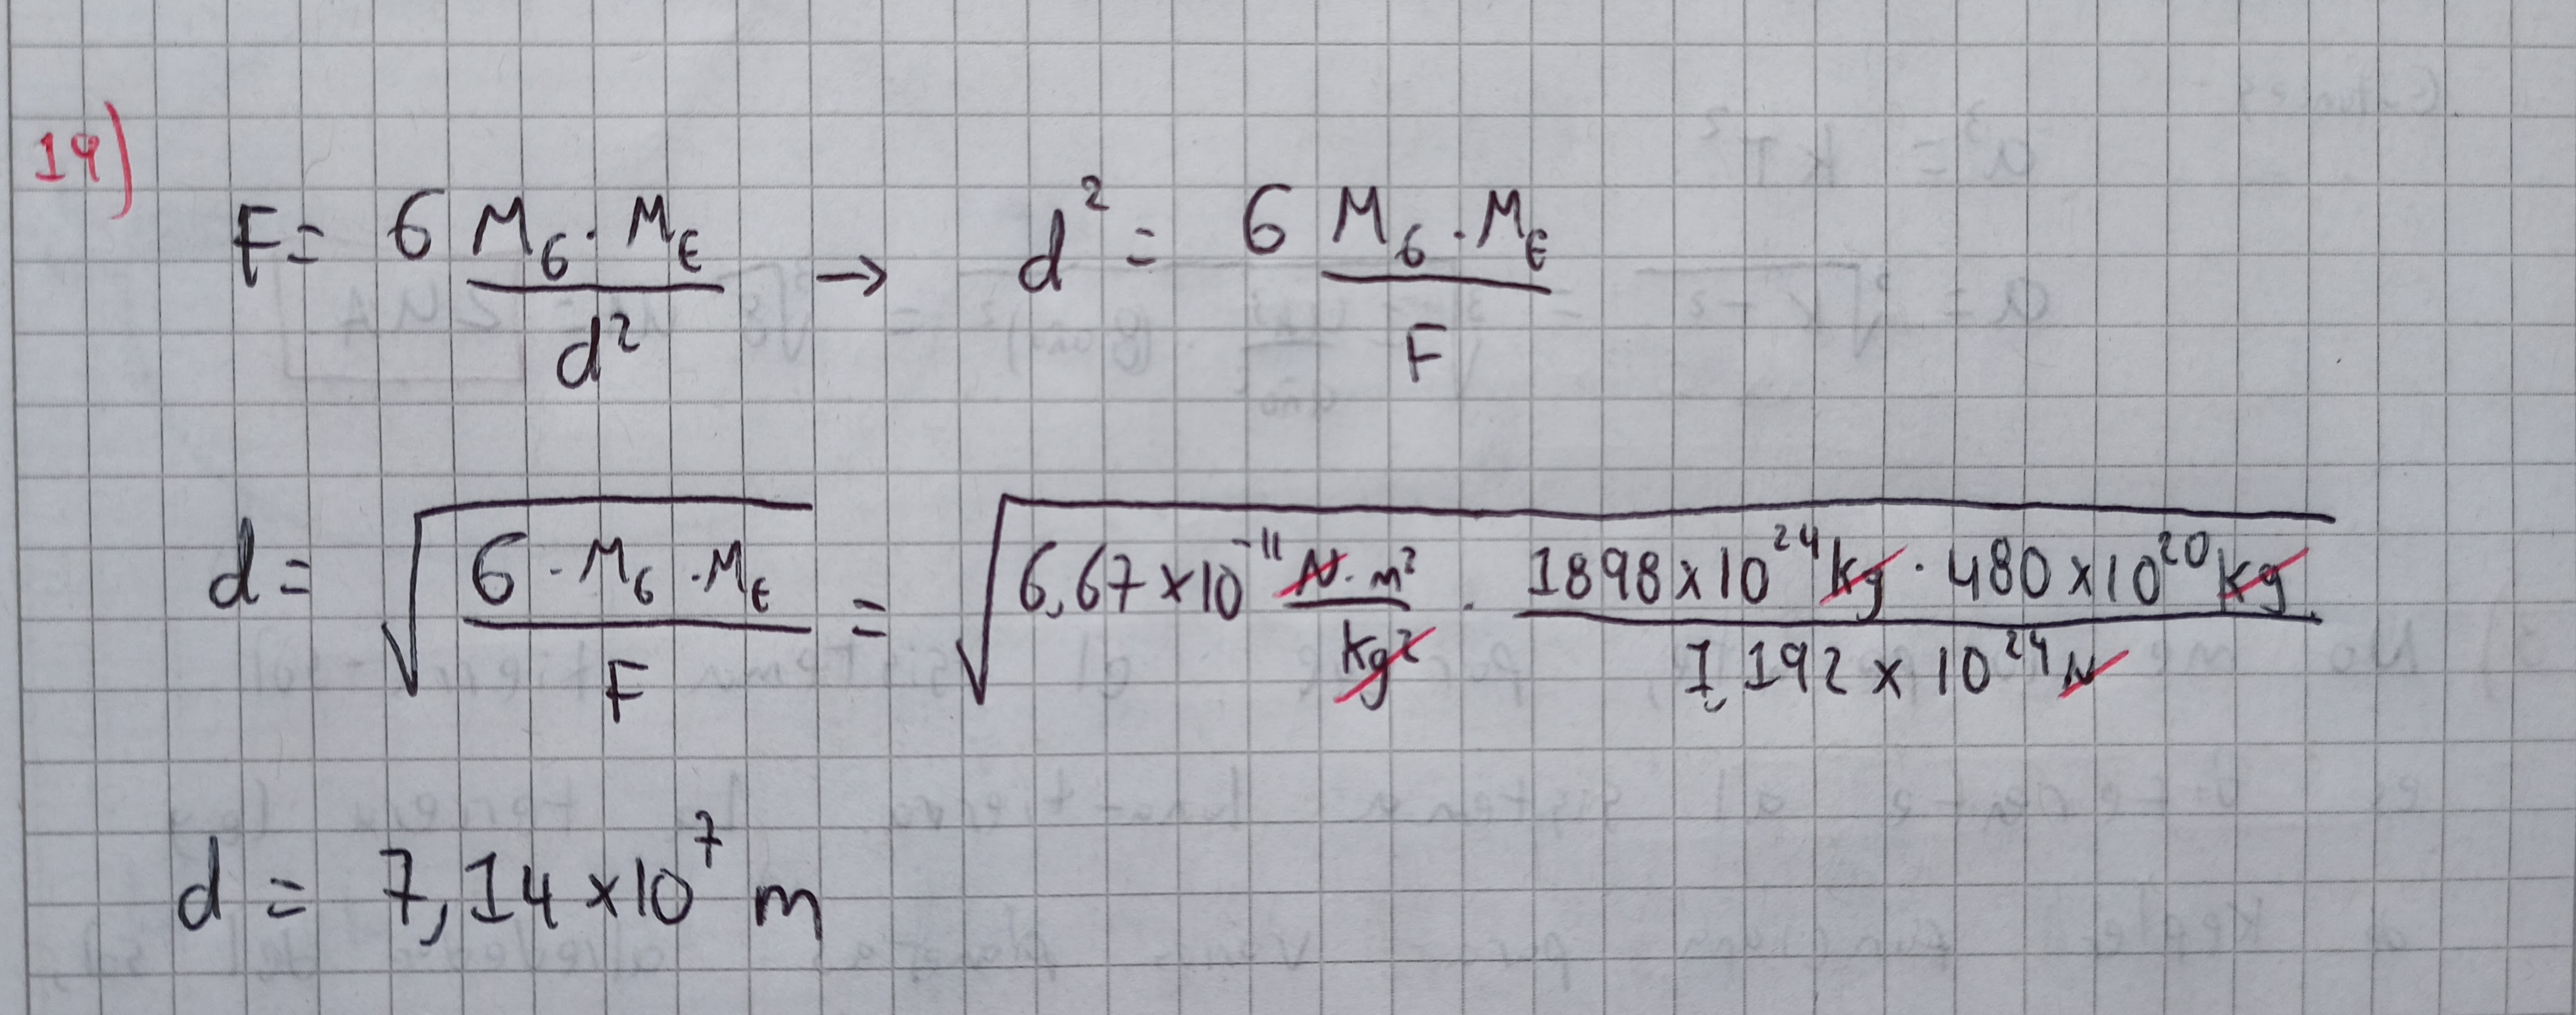 19)
F = G M_G · M_E / d² → d² = G M_G · M_E / F
d = √(G · M_G · M_E / F) = √(6,67 x 10⁻¹¹ N · m² / kg² · 1898 x 10²⁴ kg · 480 x 10²⁰ kg / 1,192 x 10²⁴ N)
d = 7,14 x 10⁷ m